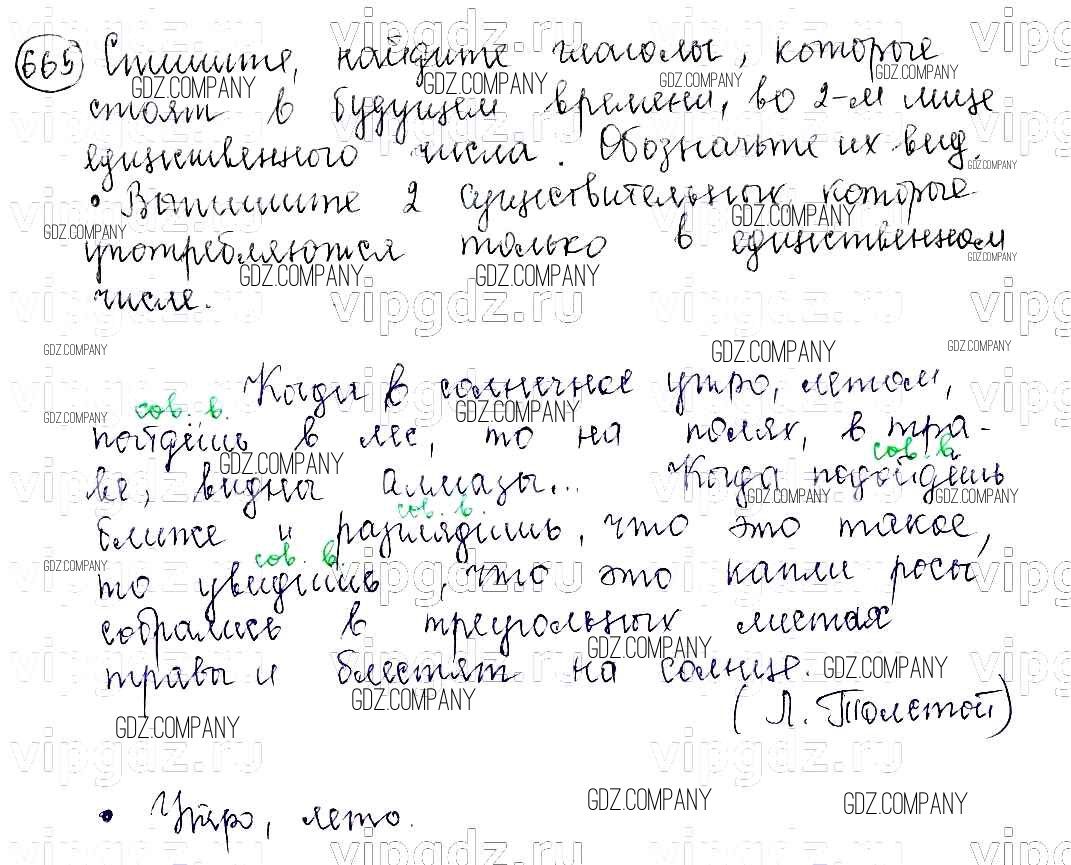 665 Спишите, найдите глаголы, которые
стоят в будущем времени, во 2-м лице
единственного числа. Обозначьте их вид.
• Выпишите 2 существительных которые
употребляются только в единственном
числе.
Когда в солнечное утро, летом,
сов. в.
пойдёшь в лес, то на полях, в тра-
сов. в
ве, видны алмазы... Когда подойдёшь
сов. в.
ближе и разглядишь, что это такое,
сов. в
то увидишь, что это капли росы
собрались в треугольных листах
травы и блестят на солнце.
(Л. Толстой)
• Утро, лето.
GDZ.COMPANY
vipgdz.ru